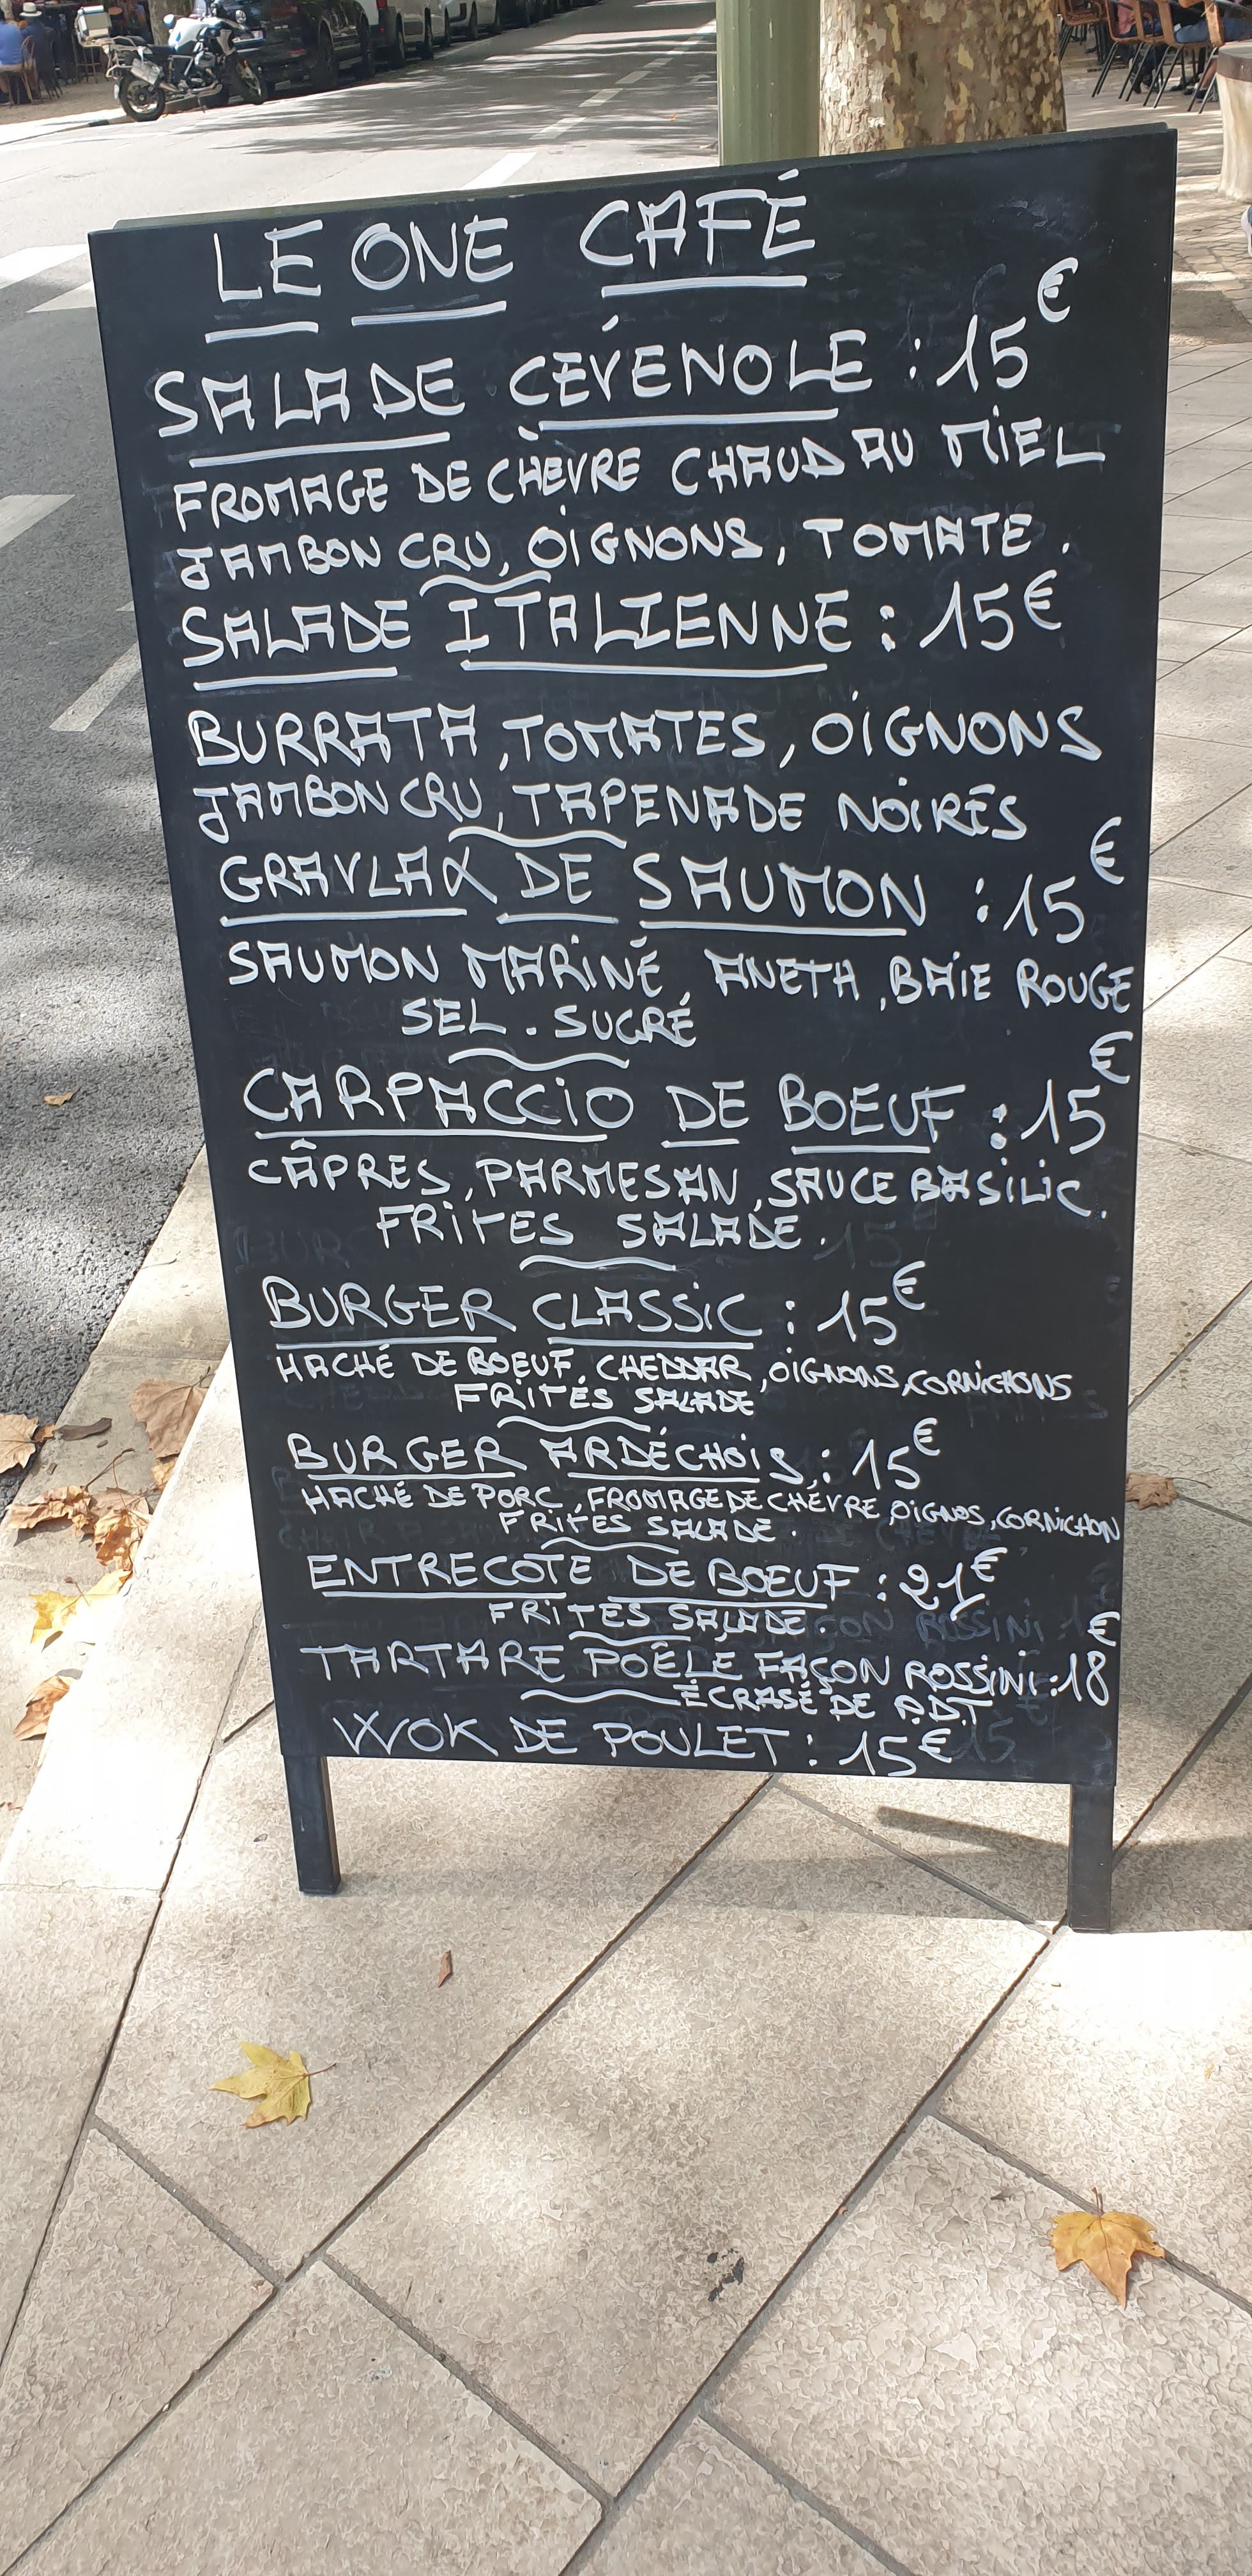 LE ONE CAFÉ
SALADE CÉVENOLE : 15€
FROMAGE DE CHÈVRE CHAUD AU MIEL
JAMBON CRU, OIGNONS, TOMATE.
SALADE ITALIENNE : 15€
BURRATA, TOMATES, OIGNONS
JAMBON CRU, TAPENADE NOIRES
GRAVLAX DE SAUMON : 15€
SAUMON MARINÉ ANETH, BAIE ROUGE
SEL . SUCRÉ
CARPACCIO DE BOEUF : 15€
CÂPRES, PARMESAN, SAUCE BASILIC.
FRITES SALADE.
BURGER CLASSIC : 15€
HACHÉ DE BOEUF, CHEDDAR, OIGNONS, CORNICHONS
FRITES SALADE
BURGER ARDÉCHOIS : 15€
HACHÉ DE PORC, FROMAGE DE CHÈVRE, OIGNOS, CORNICHON
FRITES SALADE.
ENTRECOTE DE BOEUF : 21€
FRITES SALADE.
TARTARE POÊLE FAÇON ROSSINI : 18€
ÉCRASÉ DE P.D.T
WOK DE POULET : 15€